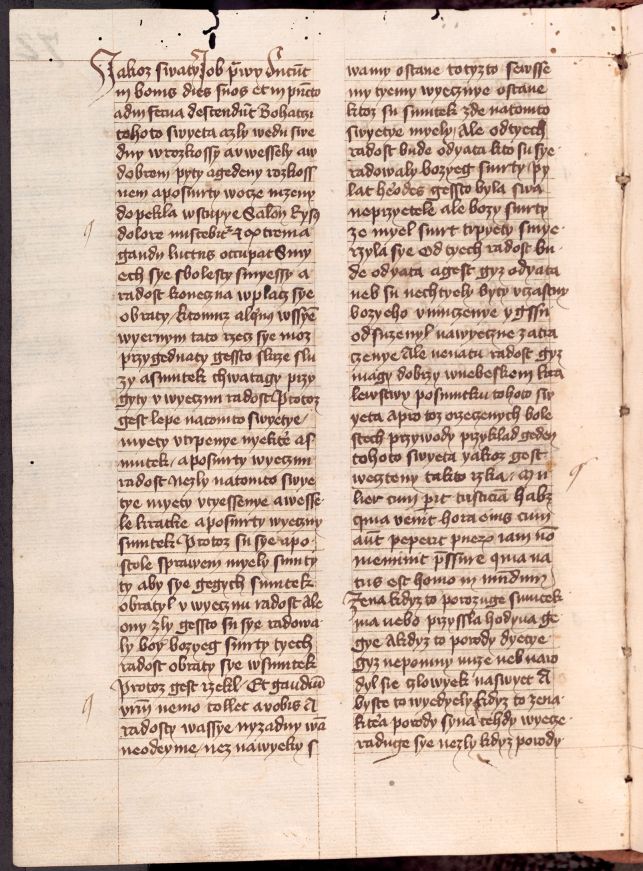 Jakoz swaty Job prwy Ducut
in bonis dies suos et in pucto
ad inferna descendut Bohatczi
tohoto swyeta a zly wedu swe
dny w rozkossy a w wessely a w
dobrem pyty a gedeny rozkoss
nem a po smrty w ocze mzeny
do pekla wstupye Salon Rysg
dolore miscebit et extrema
gaudii luctus occupat Smy
ech sye s bolesty smyessy a
radost konecna w placz sye
obraty, k tomuz alqm wssye
wyernym tato rzecz sye moz
przygednaty gessto skrze slu
zy a smutek chwatagy przy
gyty v wyeczni radost Protoz
gest lepe na tomto swyetye
myety vtrpenye nyektere a s
mutek, a po smrty wyeczni
radost Nezly na tomto swye
tye myety vtyessenye a wesse
le kratke a po smrty wyeczny
smutek Protoz su sye apo
stole sprawem myely smuty
ty aby sye gegych smutek
obratyl v wyecznu radost Ale
ony zly gessto su sye radowa
ly boy bozyeg smrty tyech
radost obraty sye w smutek
Protoz gest rzekl Et gaudiu
vrm nemo tollet a vobis A
radosty wassye nyzadny wa
neodeyme, nez na wyeky s
wamy ostane to tyzto sewsse
my tyemy wyecznye ostane
ktoz su smutek zde na tomto
swyetye myely, Ale od tyech
radost bude odyata kto su sye
radowaly bozyeg smrty, py
lat herodes gessto byla swa
neprzyetele ale bozy smrty
ze myel smrt trpyety smye
rzyla sye Od tyech radost bu
de odyata a gest gyz odyata
neb su nechtyely byty vczastny
bozyeho vmuczenye y gssu
odsuzenyl na wyeczne zatra
czenye Ale uenatu radost gyz
magy dobrzy w nebeskem kra
lewstwy po smutku tohoto sw
yeta a pro toz orzeczenych bole
stech przywody przyklad geden
tohoto swyeta yakoz gest
weczteny takto rzka, Mu
lier cum parit tristicia habz
quia venit hora eius cum
aut peperit puero iam no
meminit pressure quia na
tus est homo in mundum
Zena kdyz to porozuge smutek
ma nebo przyssla hodyna ge
gye A kdyz to porody dyetye
gyz nepomny nuze neb naro
dyl sie czlowyek na swyet A
byste to wyedyely kdyz to zena
ktera porody syna tehdy wyecze
raduge sye nezly kdyz porody